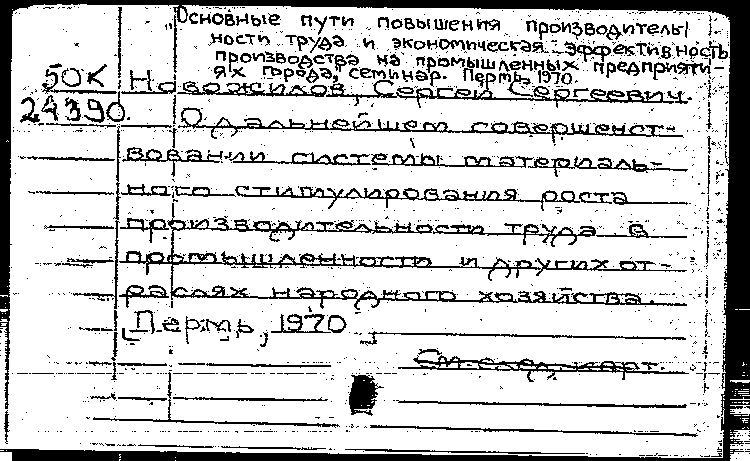 „Основные пути повышения производитель
ности труда и экономическая эффективность
производства на промышленных предприяти-
ях города, семинар. Пермь, 1970.
50К Новожилов, Сергей Сергеевич.
24390. О дальнейшем совершенст-
вовании системы материаль-
ного стимулирования роста
производительности труда в
промышленности и других от-
раслях народного хозяйства.
[Пермь, 1970]
См. след. карт.